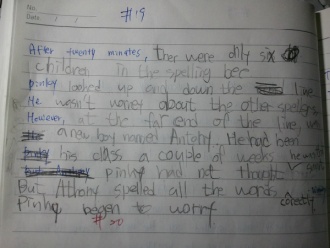 No.
Date
#19
After twenty minutes, ther were olly six
children In the spelling bee
pinky looked up and down the line
He wasn't worrey about the other spellers
However, at the far end of the line, was
a new boy named Antohy. He had been
his class a couple of weeks he wasn't
pinky had not thought
But Athony spelled all the words corectly
Pinky began to worry
#20